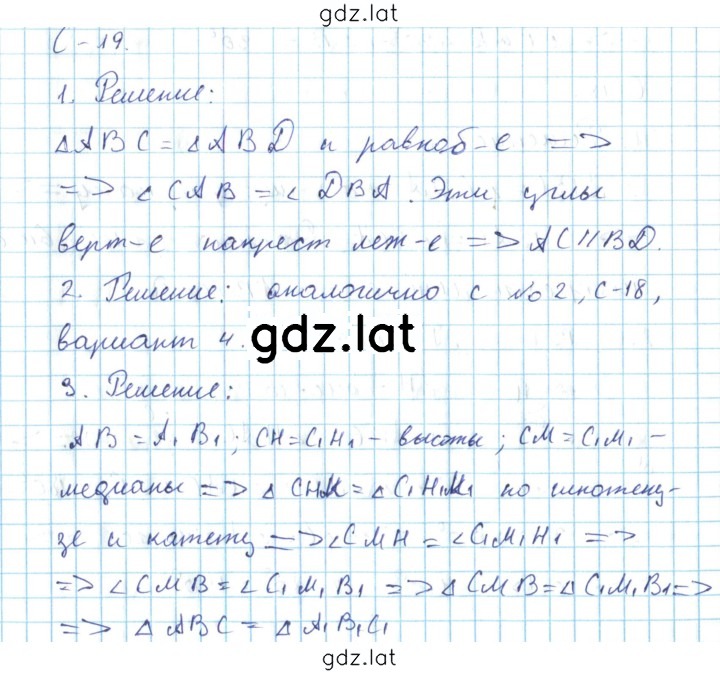 gdz.lat
С-19.
1. Решение:
△ABC = △ABD и равноб-е =>
=> ∠CAB = ∠DBA. Эти углы
верт-е накрест леж-е => AC||BD.
2. Решение: аналогично с №2, С-18,
вариант 4.
gdz.lat
3. Решение:
AB = A₁B₁; CH = C₁H₁ - высоты; CM = C₁M₁ -
медианы => △CHM = △C₁H₁M₁ по гипотену-
зе и катету => ∠CMH = ∠C₁M₁H₁ =>
=> ∠CMB = ∠C₁M₁B₁ => △CMB = △C₁M₁B₁ =>
=> △ABC = △A₁B₁C₁
gdz.lat